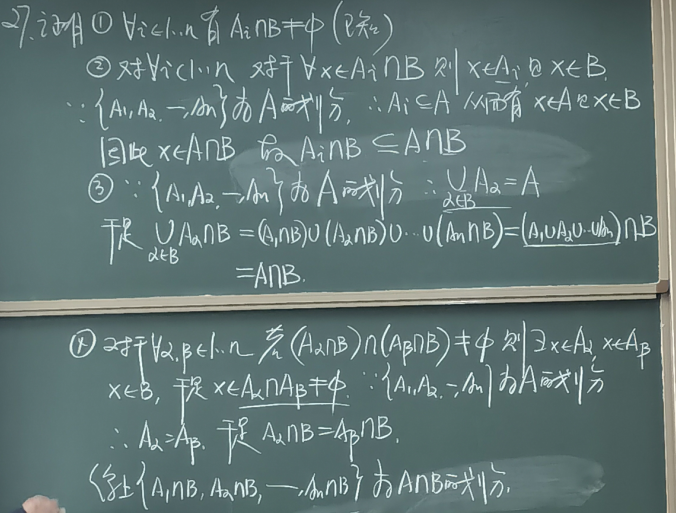 27. 证明 ① ∀i∈1…n 有 Ai∩B≠φ (已知)
② 对∀i∈1…n 对于∀x∈Ai∩B 则 x∈Ai 且 x∈B.
∵{A1,A2,…,An}为A的划分, ∴Ai⊆A 从而有 x∈A且x∈B
因此 x∈A∩B 故Ai∩B⊆A∩B
③ ∵{A1,A2,…,An}为A的划分 ∴ ∪Aα=A
α∈B
于是 ∪Aα∩B=(A1∩B)∪(A2∩B)∪…∪(An∩B)=(A1∪A2∪…∪An)∩B
α∈B
=A∩B.
④ 对于∀α,β∈1…n 若(Aα∩B)∩(Aβ∩B)≠φ 则∃x∈Aα, x∈Aβ
x∈B, 于是 x∈Aα∩Aβ≠φ. ∵{A1,A2,…,An}为A的划分
∴ Aα=Aβ. 于是 Aα∩B=Aβ∩B.
综上{A1∩B, A2∩B, …, An∩B}为A∩B的划分.